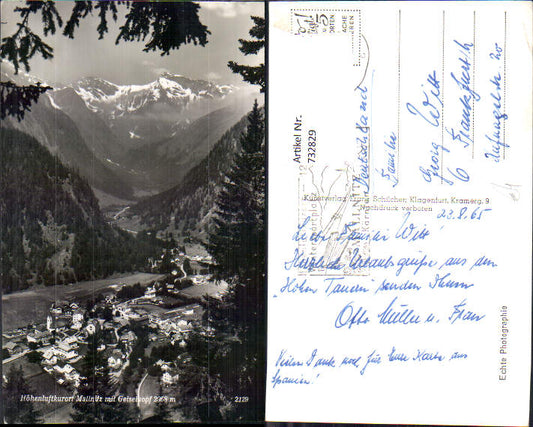 Höhenluftkurort Mallnitz mit Geiselkopf 2968 m
2129
Artikel Nr.
732829
Deutschland
Familie
Georg Witt
6 Frankfurt
Kunstverlag Franz Schilcher, Klagenfurt, Kramerg. 9
Nachdruck verboten
23.8.65
Liebe Familie Witt!
Herzliche Urlaubsgrüße aus den
"Hohen Tauern" senden Ihnen
Otto Müller u. Frau
Vielen Dank noch für Eure Karte aus
Spanien!
Echte Photographie